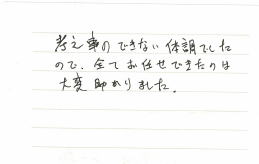 考え事のできない体調でした
ので、全てお任せできたのは
大変助かりました。